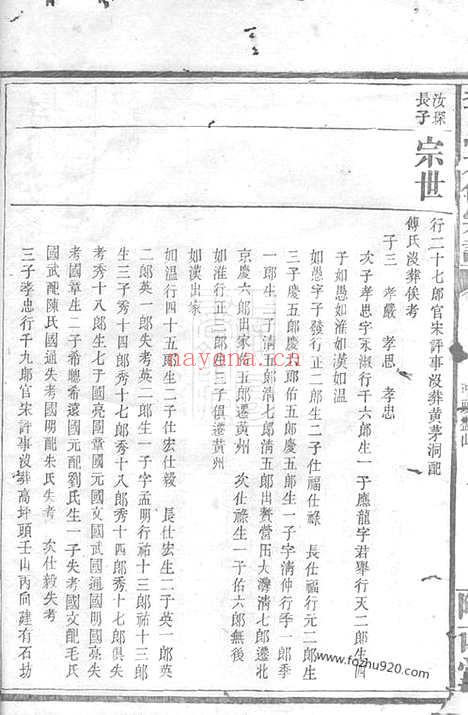 汝琛
長子
宗世
行二十七郎官宋評事沒葬黃茅洞配
傅氏沒葬俟考
子三 孝嚴 孝思 孝忠
次子孝思字永淑行千六郎生一子應龍字君舉行天二郎生四
子如愚如淮如漢如温
如愚字子發行正二郎生二子仕福仕祿 長仕福行元二郎生
三子慶五郎慶六郎佑五郎慶五郎生一子字清仲行季一郎季
一郎生二子清五郎清七郎清五郎出贅營田大灣清七郎遷北
京慶六郎出家佑五郎遷黃州 次仕祿生一子佑六郎無後
如淮行正三郎生三子俱遷黃州
如漢出家
如温行四十五郎生二子仕宏仕毅 長仕宏生二子英一郎英
二郎英一郎失考英二郎生一子字孟明行祐十三郎祐十三郎
生三子秀十四郎秀十七郎秀十八郎秀十四郎秀十七郎俱失
考秀十八郎生七子國亮國章國元國文國武國通國明國亮失
考國章生二子希聰希還國元配劉氏生一子失考國文配毛氏
國武配陳氏國通失考國明配朱氏失考 次仕毅失考
三子孝忠行千九郎官宋評事沒葬高坪頭壬山丙向建有石坊
nayana.cn
www.fozhu920.com